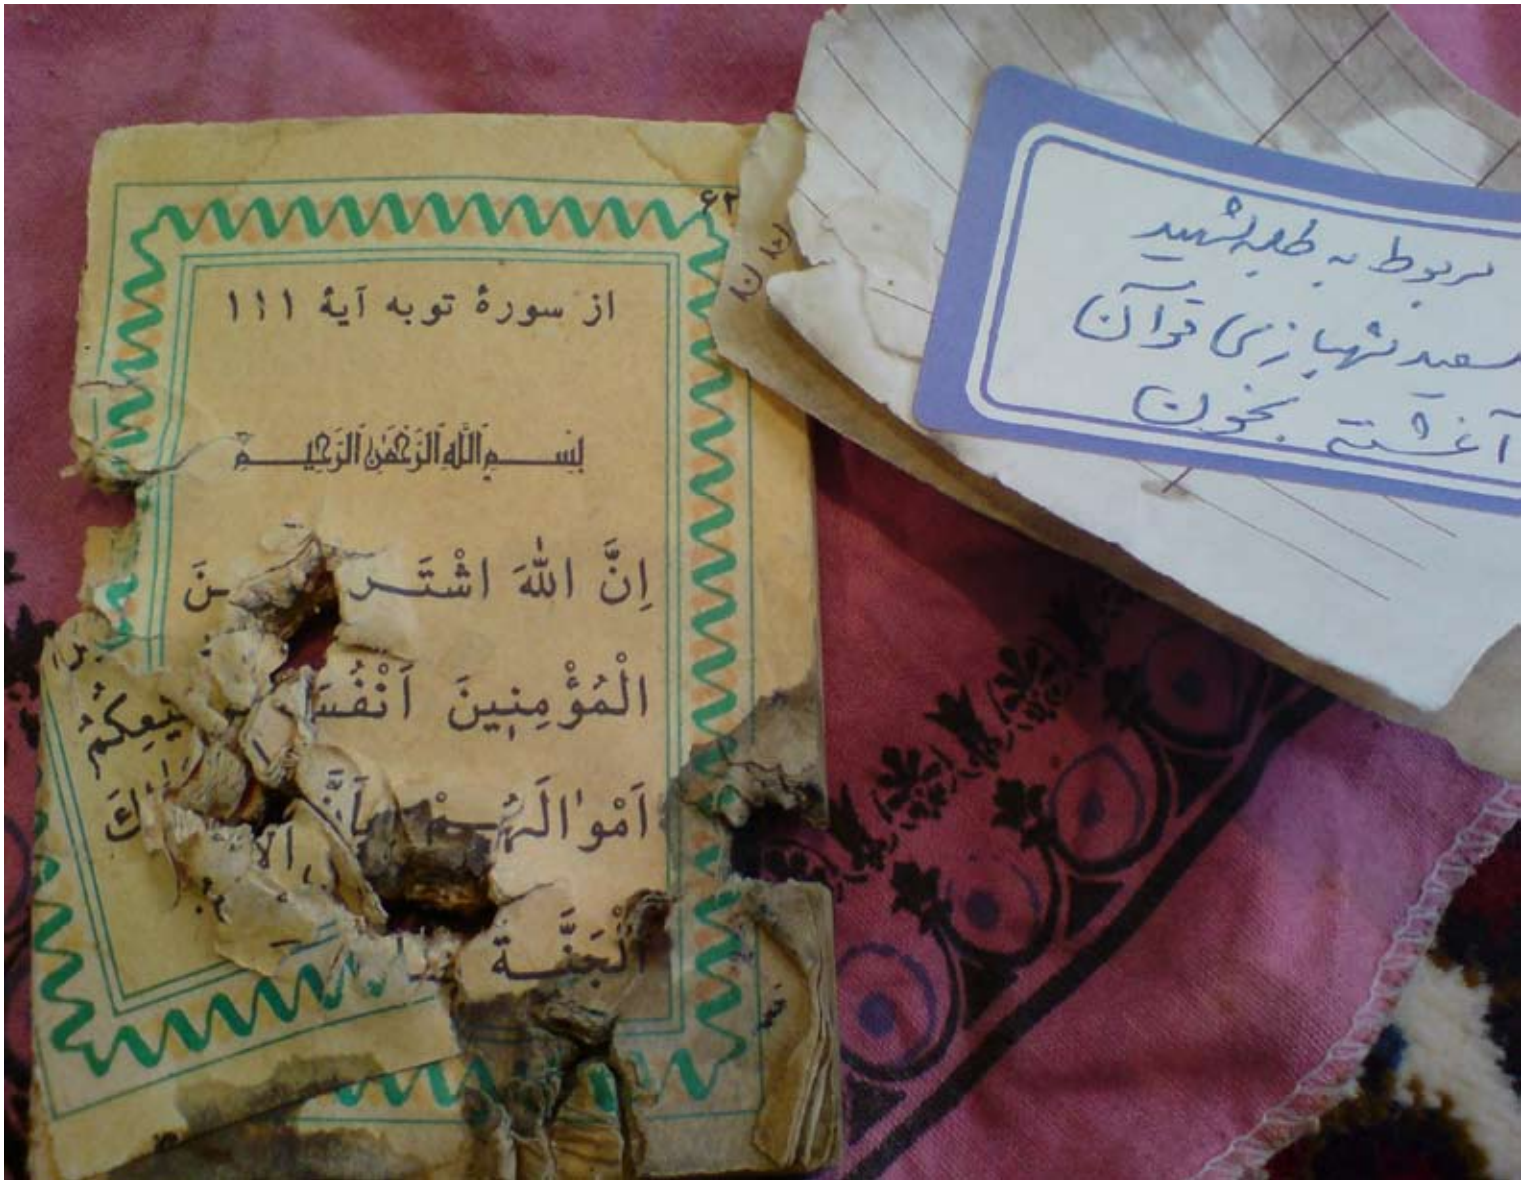 ۶۲
از سورهٔ توبه آیهٔ ۱۱۱
بِسْمِ اللَّهِ الرَّحْمَٰنِ الرَّحِيمِ
اِنَّ اللّٰهَ اشْتَـر ـنَ
الْمُؤْمِنِینَ اَنْفُسَ
اَمْوٰالَهُـمْ بِاَنَّ
الْجَنَّـةَ
مربوط به طلبه شهید
سعید شهبازی قرآن
آغشته بخون